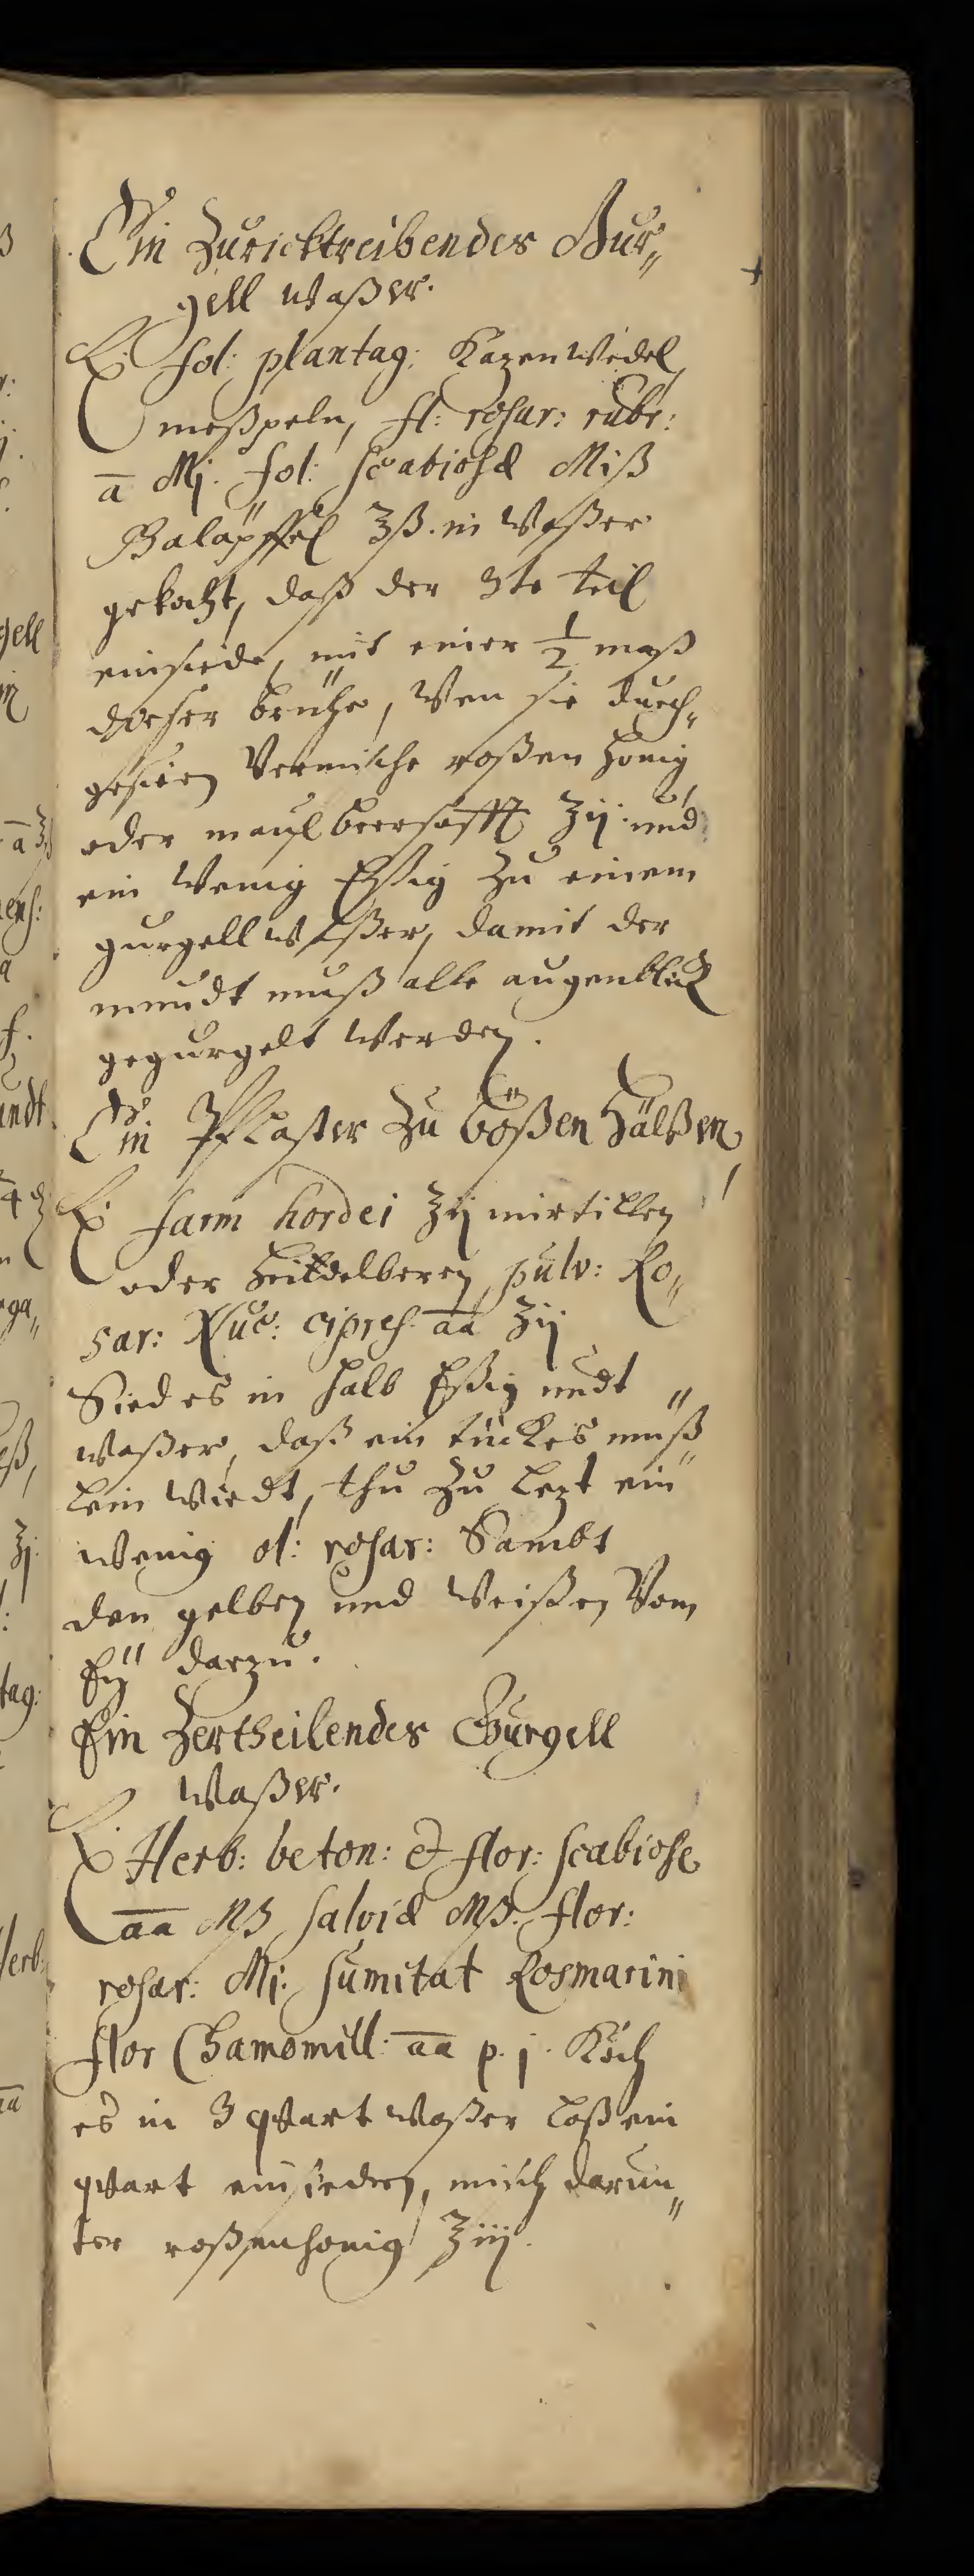 Ein Zuricktreibendes Gur„
gell waßer.
℞ fol: plantag: Kazenwedel,
meßpeln, fl: rosar: rubr:
a̅ Mj. fol: scabiosæ Miß
Balapffel ℥ß. in waßer
gekocht, daß der 3te teil
einsiede, mit einer ½ maß
dießer brühe, wen sie durch„
gesiegen vermische roßen honig
oder maulbeersafft ℥ij und
ein wenig Eßig zu einem
gurgell waßer, damit der
mundt muß alle augenblick
gegurgelt werden.
Ein Pflaster zu bößen Hälßen
℞ farin hordei ℥ij mirtillen
oder Heidelberen, pulv: Ro„
sar: Nuc: cipres a̅a̅ ℥ij
Sied es in halb Eßig undt
waßer, daß ein dickes muß„
lein wirdt, thu zu lezt ein
wenig ol: rosar: Sambt
den gelben und weißen vom
Eÿ darzu.
Ein Zertheilendes Gurgell
waßer.
℞ Herb: beton: & flor: scabiose
a̅a̅ Mß salviæ Mß. flor:
rosar: Mj: sumitat Rosmarini
flor Chamomill: a̅a̅ p. j. Koch
es in 3 qvart waßer laß ein
qvart einsieden, misch darun„
ter roßenhonig ℥iij.